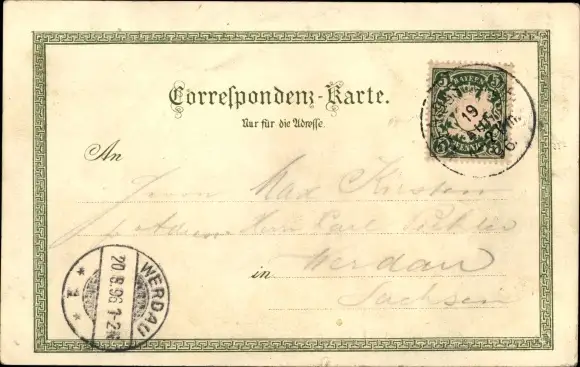 Correspondenz-Karte.
Nur für die Adresse.
BAYERN
5 5
PFENNIG
19
An
Herrn Max Kirsten
Adr. Herrn Carl
in Werdau
Sachsen
WERDAU
20.8.98 1-2
* 1 *